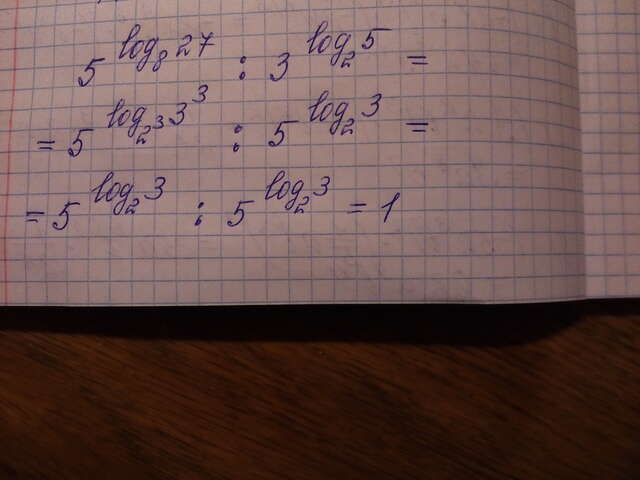 5^{log_8 27} : 3^{log_2 5} =
= 5^{log_{2^3} 3^3} : 5^{log_2 3} =
= 5^{log_2 3} : 5^{log_2 3} = 1